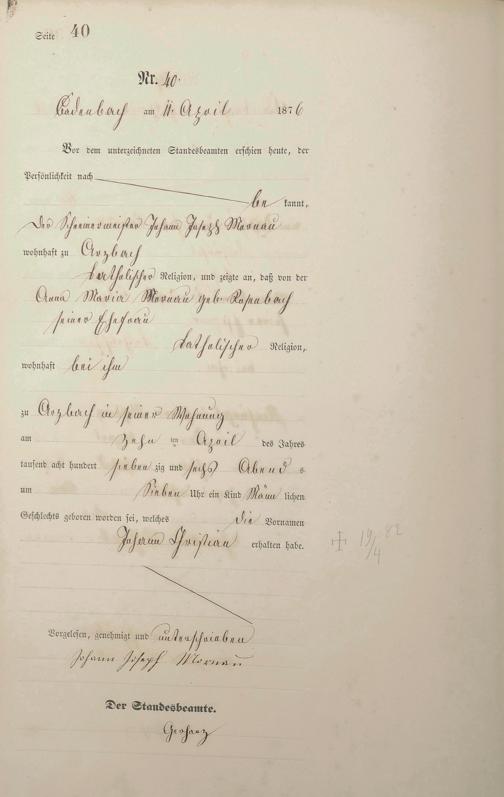 Seite 40
Nr. 40.
Cadenbach am 11. April 1876
Vor dem unterzeichneten Standesbeamten erschien heute, der
Persönlichkeit nach
be kannt,
Der Schreinermeister Johann Joseph Mornau
wohnhaft zu Arzbach
katholischer Religion, und zeigte an, daß von der
Anna Maria Mornau geb. Rosenbach
seiner Ehefrau
katholischer Religion,
wohnhaft bei ihm
zu Arzbach in seiner Wohnung
am zehn ten April des Jahres
tausend acht hundert sieben zig und sechs Abend s
um Sieben Uhr ein Kind Männ lichen
Geschlechts geboren worden sei, welches die Vornamen
Johann Christian erhalten habe.
19/4 82
Vorgelesen, genehmigt und unterschrieben
Johann Joseph Mornau
Der Standesbeamte.